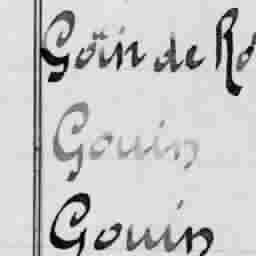 Goïn de Ro
Gouin
Gouin